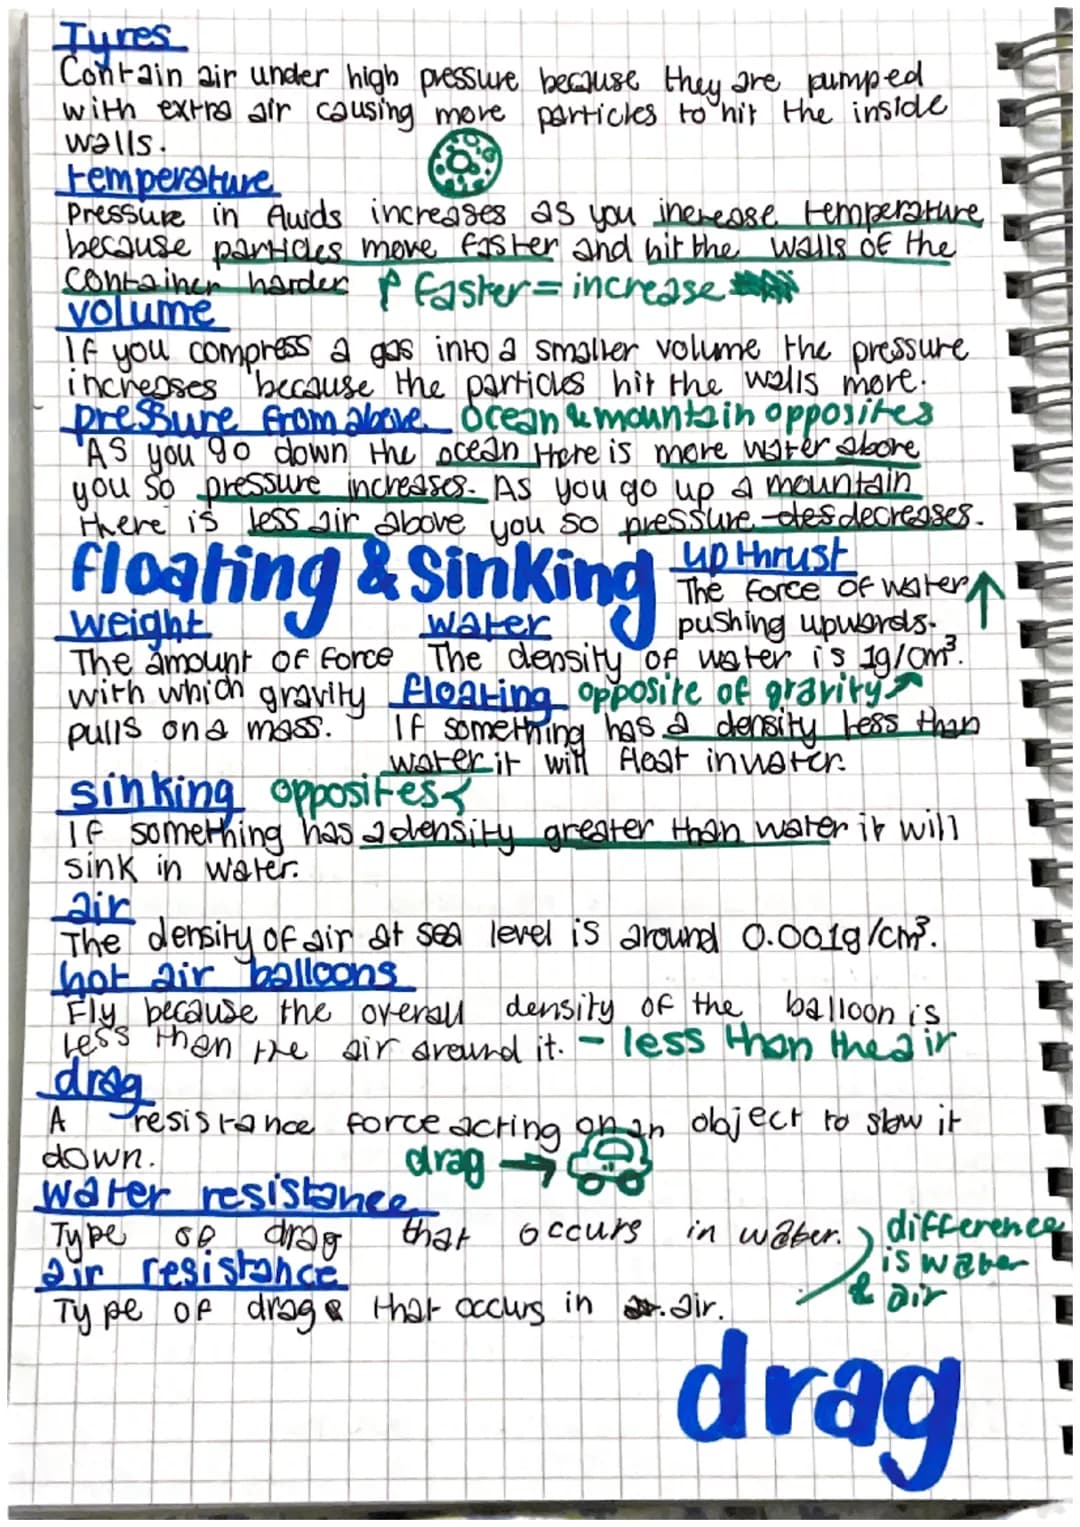 Tyres
Contain air under high pressure because they are pumped
with extra air causing more particles to hit the inside
walls.
temperature
Pressure in fluids increases as you increase temperature
because particles move faster and hit the walls of the
container harder ↑ faster = increase
volume
If you compress a gas into a smaller volume the pressure
increases because the particles hit the walls more.
pressure from above ocean & mountain opposites
As you go down the ocean there is more water above
you so pressure increases. As you go up a mountain
there is less air above you so pressure des decreases.
floating & sinking
upthrust
The force of water ↑
pushing upwards.
weight
The amount of force
with which gravity
pulls on a mass.
water
The density of water is 1g/cm³.
floating opposite of gravity
If something has a density less than
water it will float in water.
sinking opposites
If something has a density greater than water it will
sink in water.
air
The density of air at sea level is around 0.001g/cm³.
hot air balloons
Fly because the overall density of the balloon is
less than the air around it. - less than the air
drag
A resistance force acting on an object to slow it
down. drag →
water resistance
Type of drag that occurs in water.
difference
is water
& air
air resistance
Type of drag that occurs in air.
drag